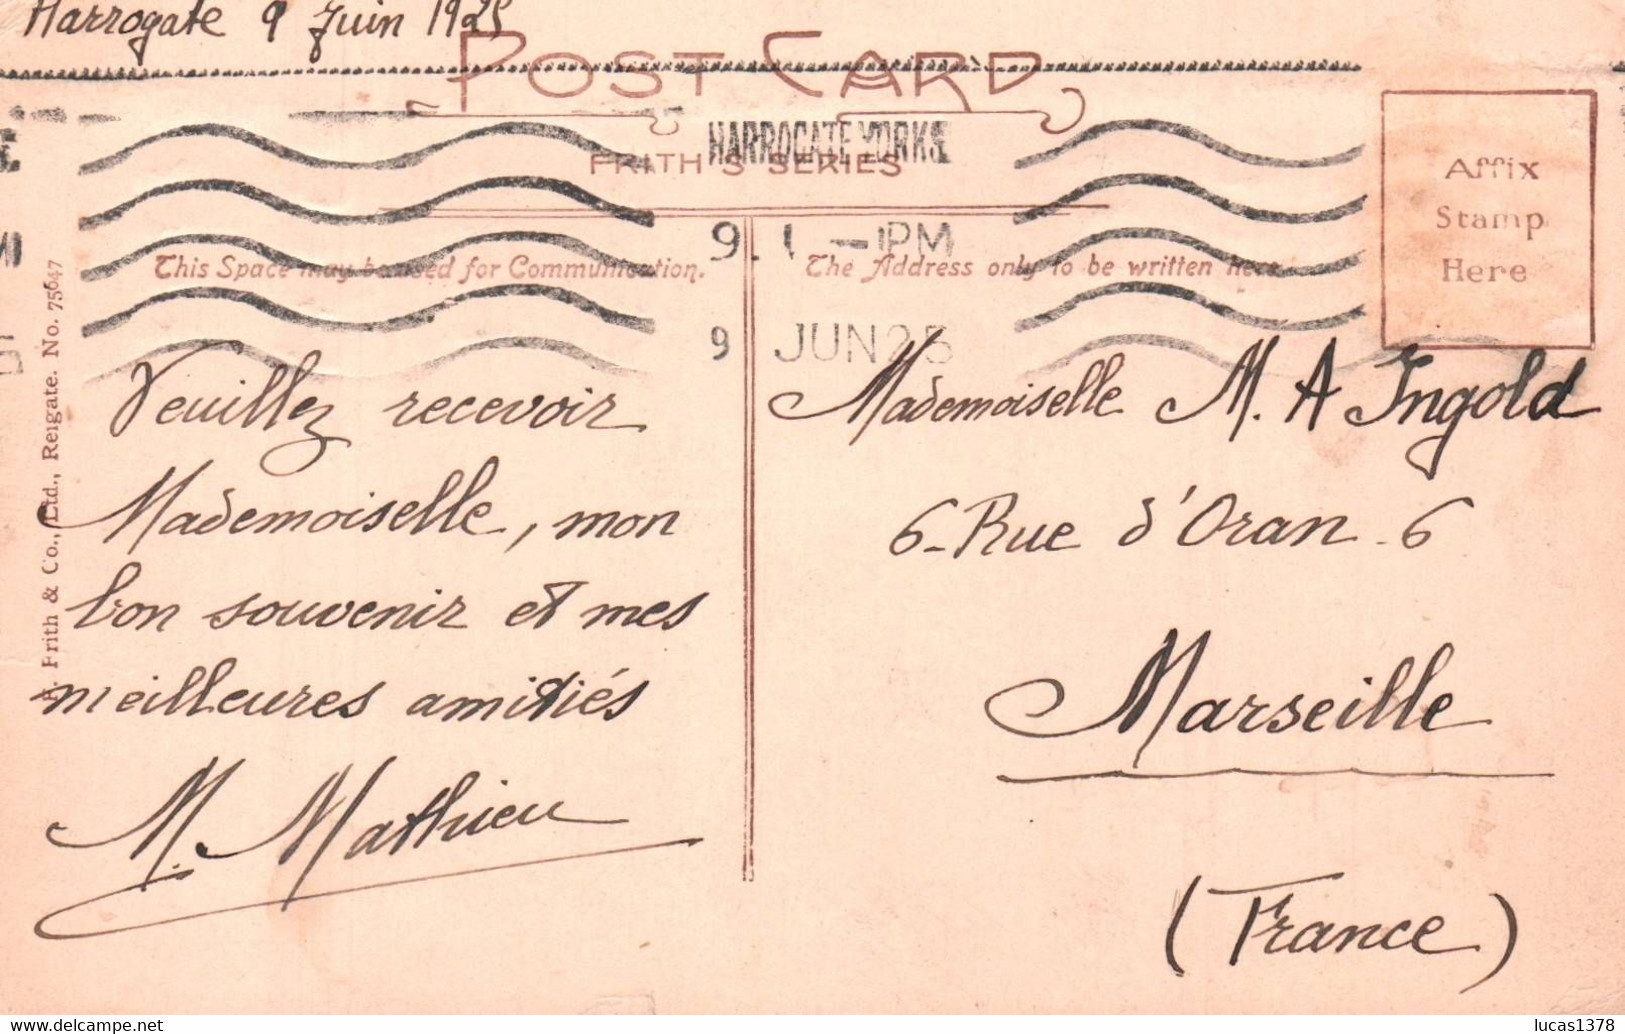 Harrogate 9 Juin 1925
POST CARD
HARROGATE YORKS
FRITH'S SERIES
9 JUN 25
This Space may be used for Communication.
The Address only to be written here.
Affix
Stamp
Here
F. Frith & Co., Ltd., Reigate. No. 75647
Veuillez recevoir
Mademoiselle, mon
bon souvenir et mes
meilleures amitiés
M. Mathieu
Mademoiselle M. A Ingold
6 - Rue d'Oran - 6
Marseille
(France)
lucas1378